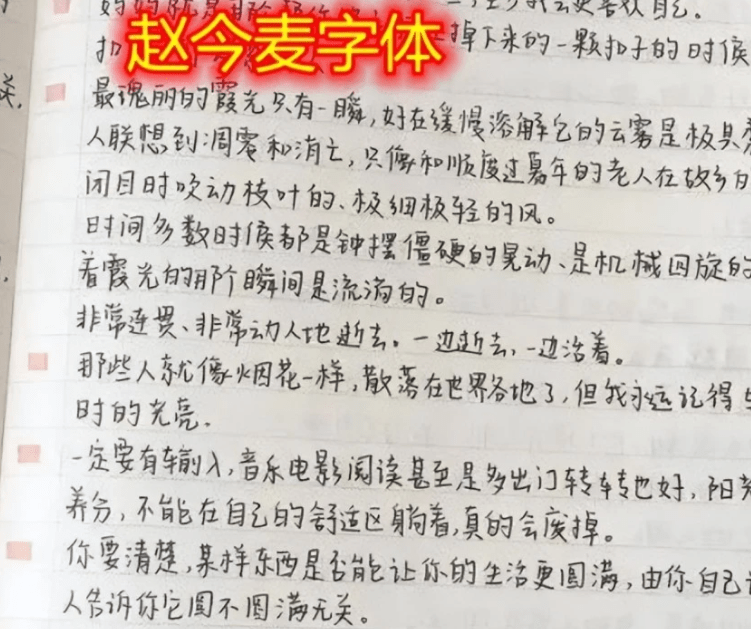 是会更喜欢自己。
赵今麦字体
扣
掉下来的一颗扣子的时候
关,
最瑰丽的霞光只有一瞬,好在缓慢溶解它的云雾是极具
人联想到凋零和消亡,只像和顺度过暮年的老人在故乡
闭目时吹动枝叶的、极细极轻的风。
时间多数时候都是钟摆僵硬的晃动、是机械回旋的
着霞光的那个瞬间是流淌的。
非常连贯、非常动人地逝去。一边逝去,一边活着。
那些人就像烟花一样,散落在世界各地了,但我永远记得
时的光亮.
一定要有输入,音乐电影阅读甚至是多出门转转也好,阳
养分,不能在自己的舒适区躺着,真的会废掉。
你要清楚,某样东西是否能让你的生活更圆满,由你自己
人告诉你它圆不圆满无关。